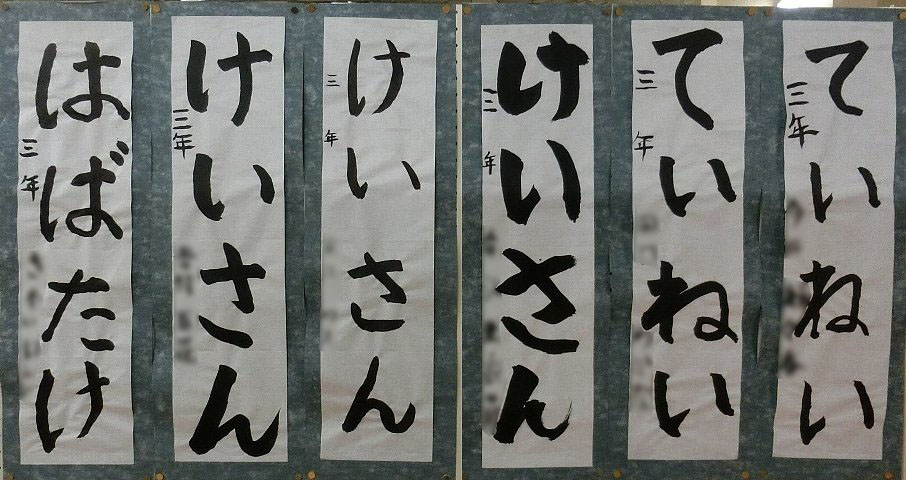 ていねい
三年
ていねい
三年
けいさん
三年
けいさん
三年
けいさん
三年
はばたけ
三年